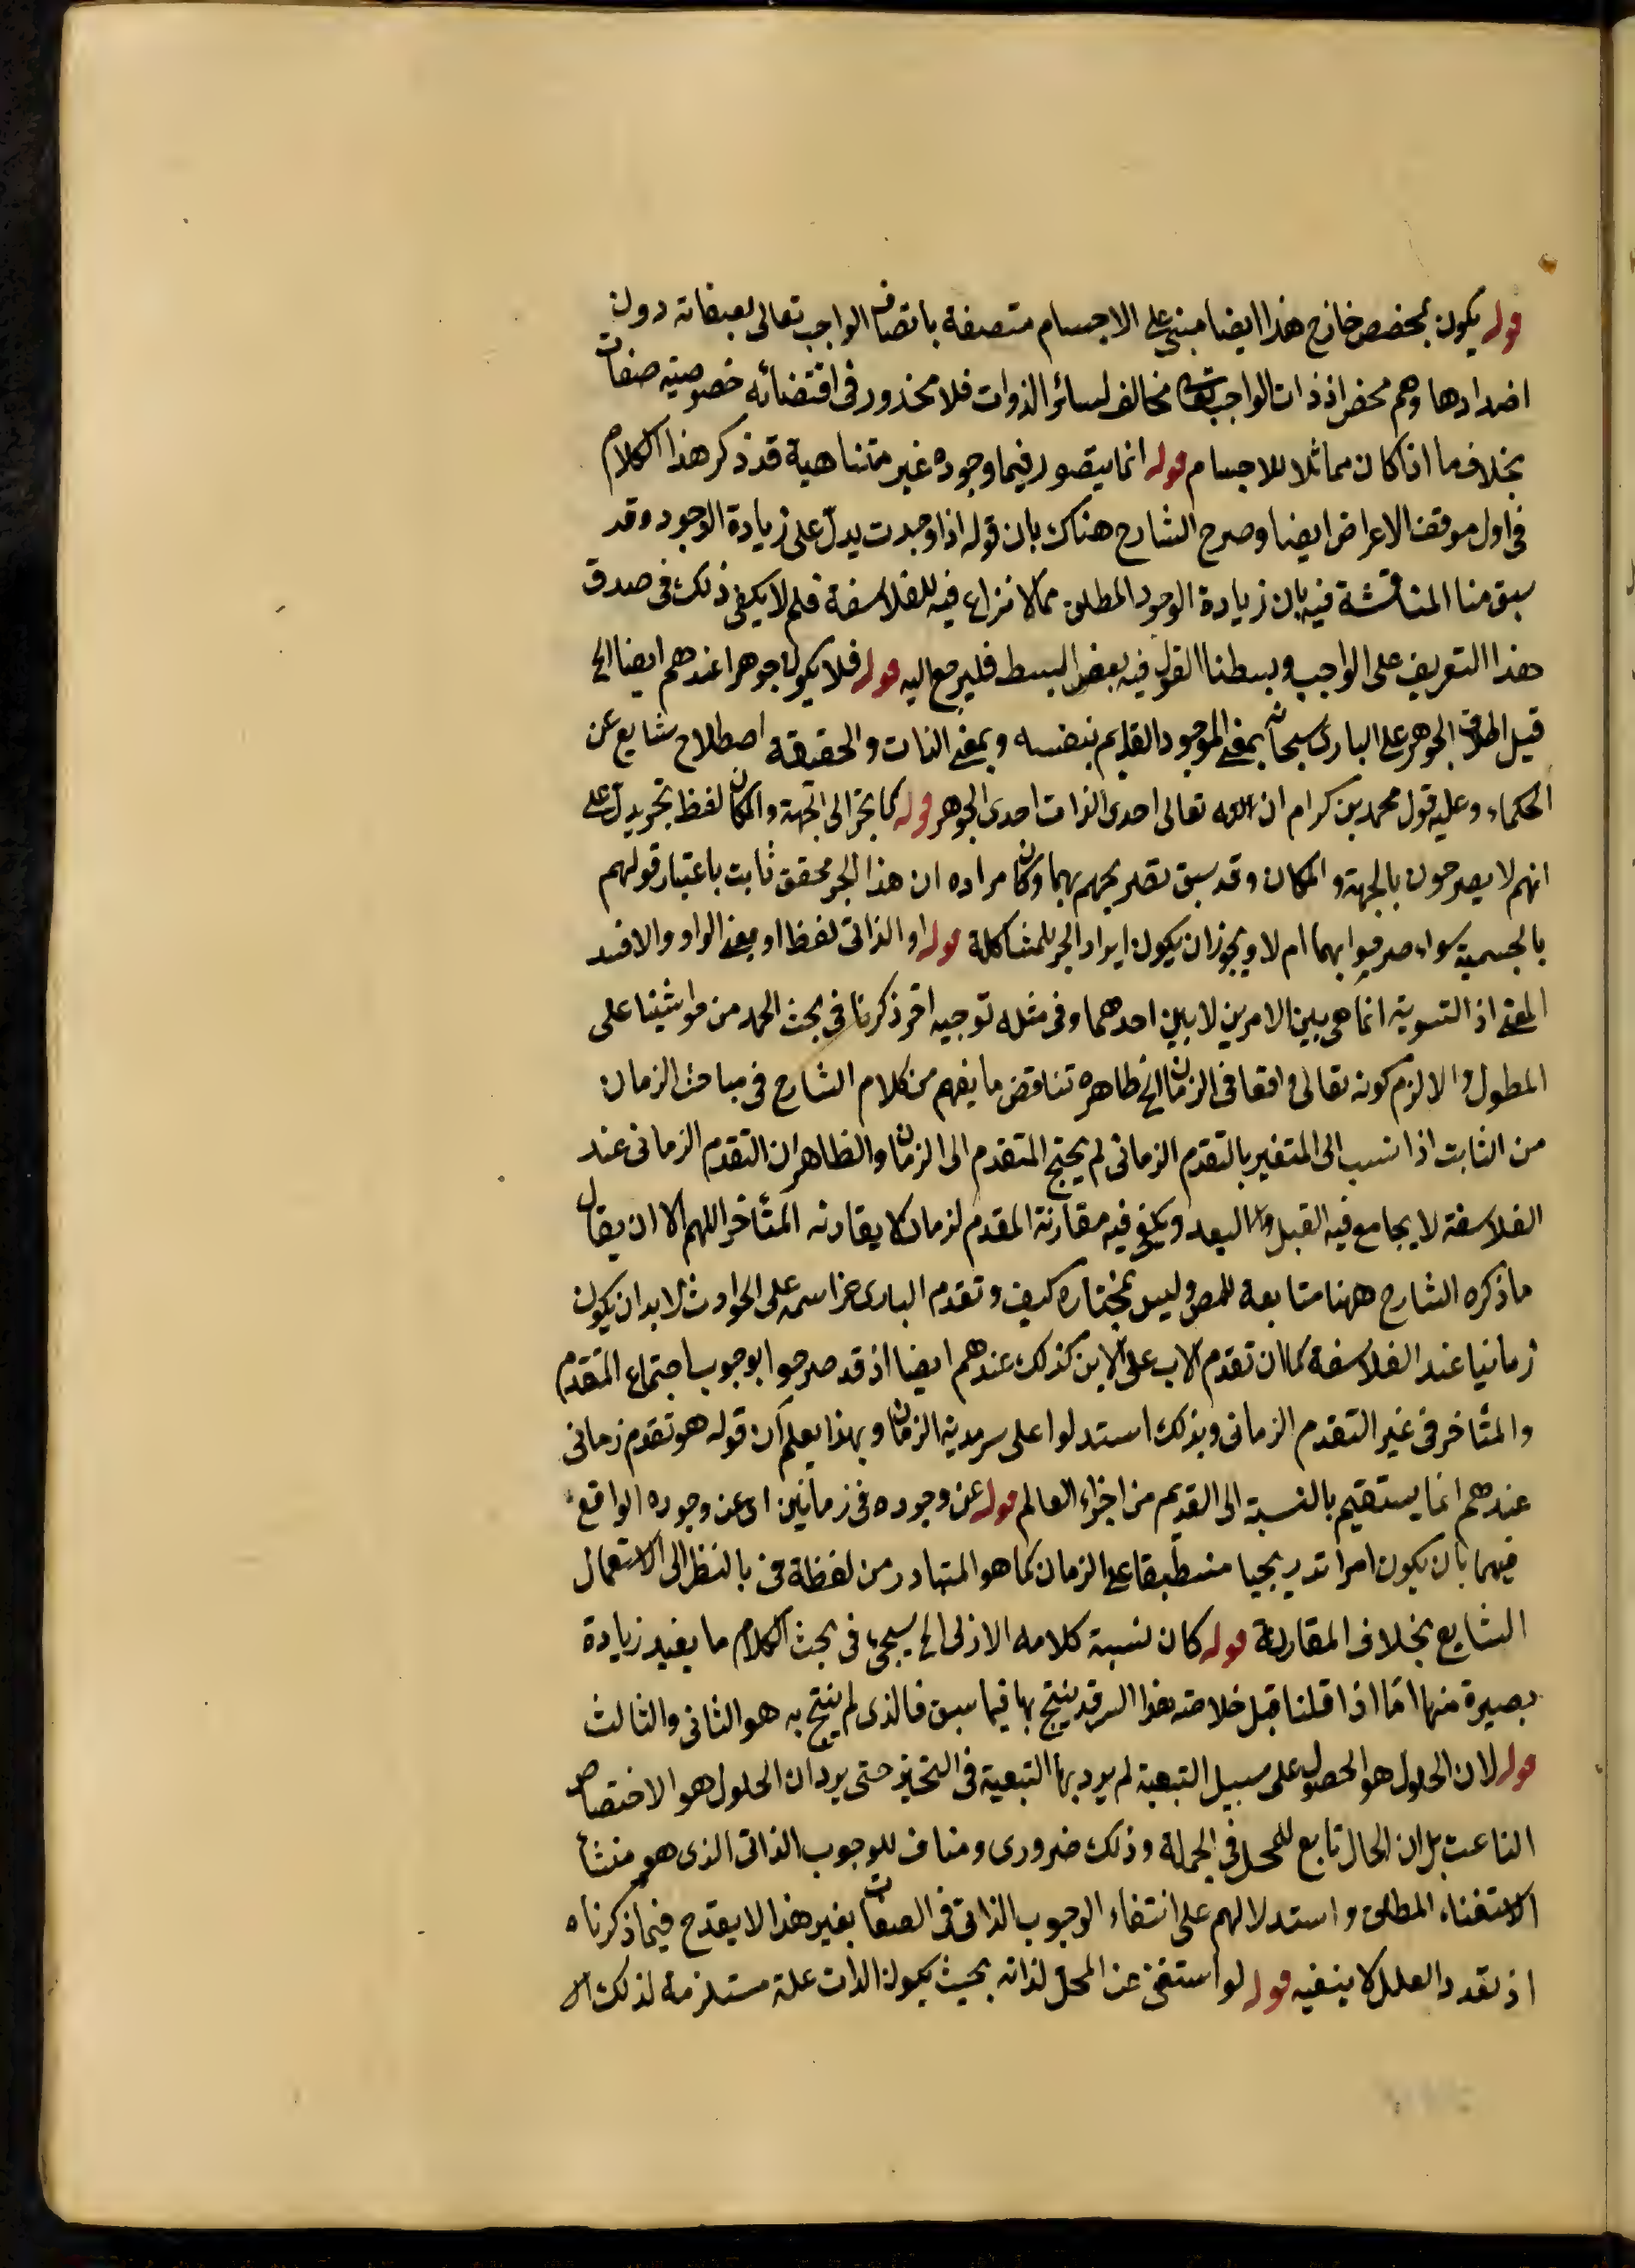 قوله يكون بمخصص خارج هذا ايضا مبنى على الاجسام متصفة باتصاف الواجب تعالى بصفاته دون
اضدادها وهم محض اذ ذات الواجب تعالى مخالف لسائر الذوات فلا محذور فى اقتضائه خصوصية صفات
بخلاف ما اذا كان مماثلا للاجسام قوله انما يتصور فيما وجوده غير متناهية قد ذكر هذا الكلام
فى اول موقف الاعراض ايضا وصرح الشارح هناك بان قوله اذا وجدت يدل على زيادة الوجود وقد
سبق منا المناقشة فيه بان زيادة الوجود المطلق مما لا نزاع فيه للفلاسفة فلم لا يكفى ذلك فى صدق
هذا التعريف على الواجب وبسطنا القول فيه بعض البسط فليرجع اليه قوله فلا يكون جوهرا عندهم ايضا الخ
قيل اطلاق الجوهر على البارى سبحانه بمعنى الموجود القايم بنفسه وبمعنى الذات والحقيقة اصطلاح شايع عن
الحكماء وعليه قول محمد بن كرام ان الله تعالى احدى الذات احدى الجوهر قوله كما يجر الى الجهة والمكان لفظ تجر يدل على
انهم لا يصرحون بالجهة والمكان وقد سبق تصريحهم بهما وكان مراده ان هذا الجر محقق ثابت باعتبار قولهم
بالجسمية سواء صرحوا بهما ام لا ويجوز ان يكون ايراد الجر للمشاكلة قوله او الذاتى لفظ او بمعنى الواو والا فسد
المعنى اذ التسوية انما هى بين الامرين لا بين احدهما وفى مثله توجيه اخر ذكرنا فى بحث الحمد من حواشينا على
المطول والا لزم كونه تعالى واقعا فى الزمان الخ ظاهره تناقض ما يفهم من كلام الشارح فى مباحث الزمان
من الثابت اذا نسب الى المتغير بالتقدم الزمانى لم يحتج المتقدم الى الزمان والظاهر ان التقدم الزمانى عند
الفلاسفة لا يجامع فيه القبل والبعد ويكفى فيه مقارنة المقدم لزمان لا يقارنه المتأخر اللهم الا ان يقال
ما ذكره الشارح ههنا متابعة للمص وليس بمختاره كيف وتقدم البارى عز اسمه على الحوادث لا بد ان يكون
زمانيا عند الفلاسفة كما ان تقدم الاب على الابن كذلك عندهم ايضا اذ قد صرحوا بوجوب اجتماع المتقدم
والمتأخر فى غير التقدم الزمانى وبذلك استدلوا على سرمدية الزمان وبهذا يعلم ان قوله هو تقدم زمانى
عندهم انما يستقيم بالنسبة الى القديم من اجزاء العالم قوله عن وجوده فى زمانين اى عن وجوده الواقع
فيهما بان يكون امرا تدريجيا منطبقا على الزمان كما هو المتبادر من لفظة فى بالنظر الى الاستعمال
الشايع بخلاف المقارنة قوله كان نسبة كلامه الازلى الخ سيجئ فى بحث الكلام ما يفيد زيادة
بصيرة منها اما اذا قلنا قبل خلاصته هذا السر قد ينتج بها فيما سبق فالذى لم ينتج به هو الثانى والثالث
قوله لان الحلول هو الحصول على سبيل التبعية لم يرد بها التبعية فى التحيز حتى يرد ان الحلول هو الاختصاص
الناعت بل ان الحال تابع للمحل فى الجملة وذلك ضرورى ومناف للوجوب الذاتى الذى هو منشأ
الاستغناء المطلق واستدلالهم على انتفاء الوجوب الذاتى فى الصفات بغير هذا لا يقدح فيما ذكرناه
اذ تعدد العلل لا ينفيه قوله لو استغنى عن المحل لذاته بحيث يكون الذات علة مستلزمة لذلك الا